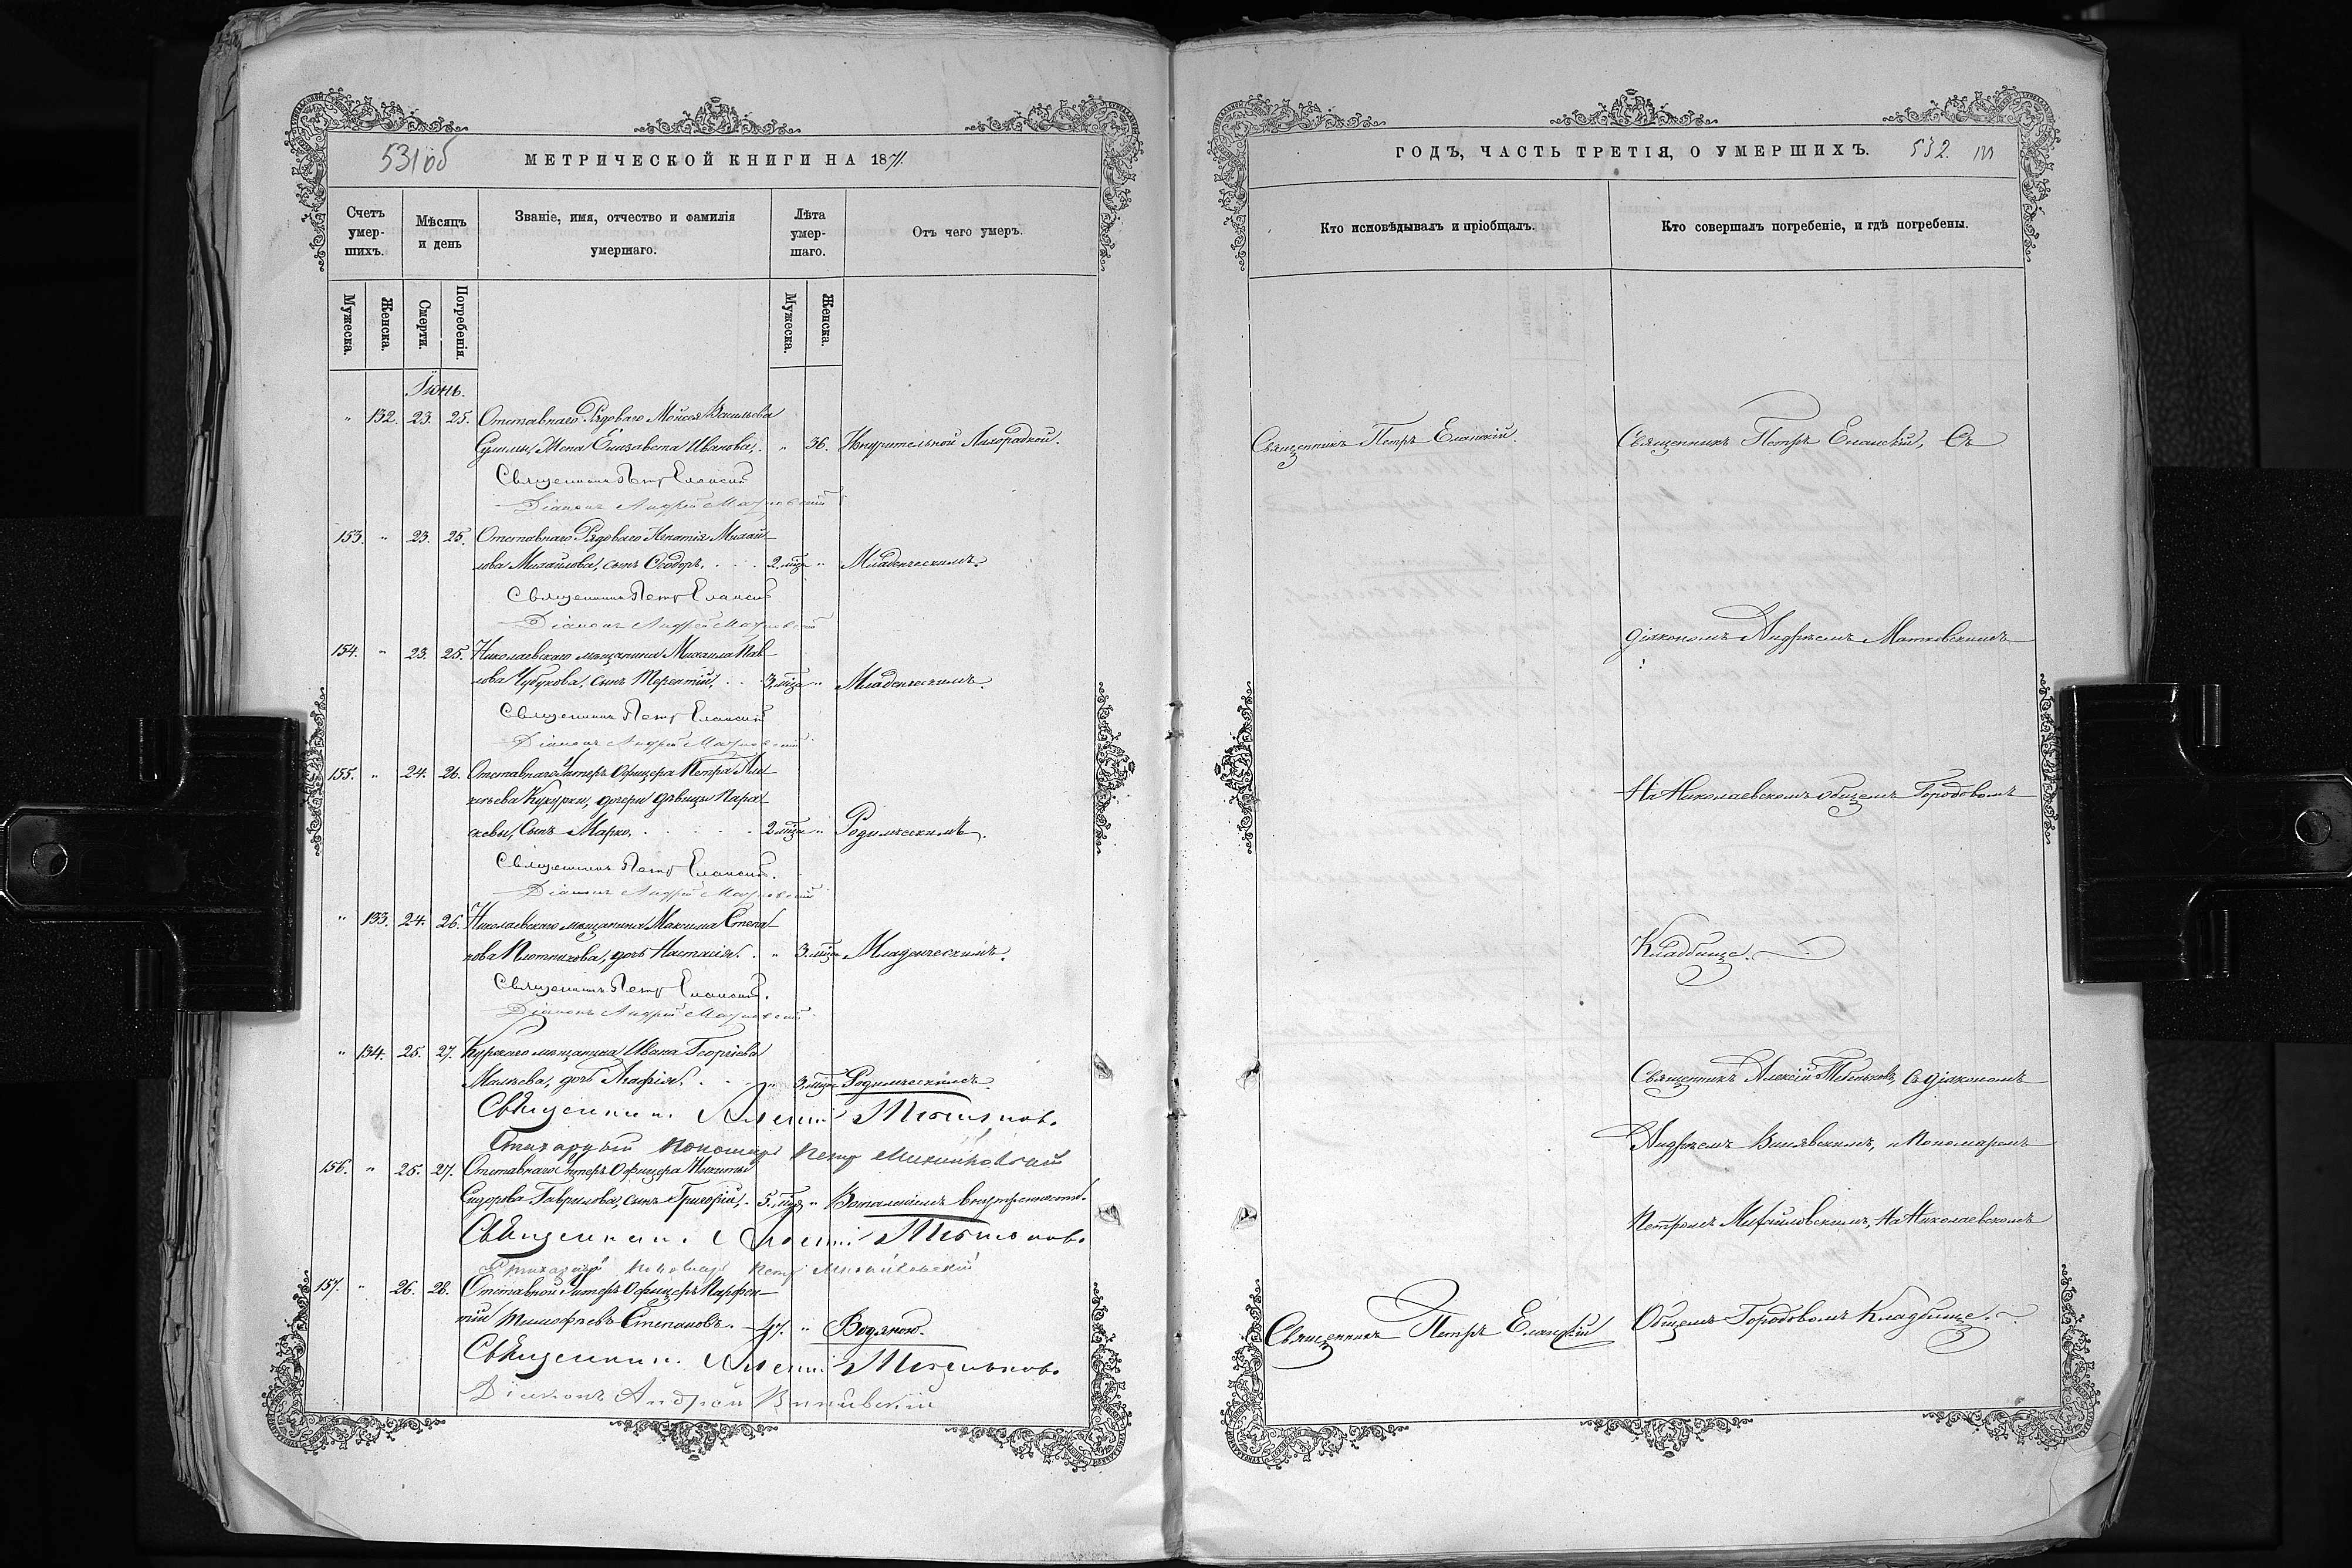 531 об МЕТРИЧЕСКОЙ КНИГИ НА 1871.
Счетъ умер-шихъ.
Мѣсяцъ и день
Званіе, имя, отчество и фамилія умершаго.
Лѣта умер-шаго.
Отъ чего умеръ.
Мужеска.
Женска.
Смерти.
Погребенія.
Мужеска.
Женска.
Іюнь.
" 132. 23. 25. Отставнаго Рядоваго Моисея Васильева
Сулимы, Жена Елизавета Иванова, " 36. Изнурительной Лихорадкой.
Священникъ Петръ Еланскій
Діаконъ Андрей Матковскій
153. " 23. 25. Отставнаго Рядоваго Игнатія Михай-
лова Михайлова, сынъ Ѳеодоръ, 2. мца " Младенческимъ.
Священникъ Петръ Еланскій
Діаконъ Андрей Матковскій
154. " 23. 25. Николаевскаго мѣщанина Михаила Пав-
лова Чубукова, сынъ Терентій, 3. мца " Младенческимъ.
Священникъ Петръ Еланскій
Діаконъ Андрей Матковскій
155. " 24. 26. Отставнаго Унтеръ Офицера Петра Але-
ксѣева дочери дѣвицы Пара-
скевы, Сынъ Марко, 2 мца " Родимческимъ.
Священникъ Петръ Еланскій.
Діаконъ Андрей Матковскій
" 133. 24. 26. Николаевскаго мѣщанина Максима Степа-
нова Плотникова, дочь Настасія. " 3. мца Младенческимъ.
Священникъ Петръ Еланскій.
Діаконъ Андрей Матковскій
" 134. 25. 27. Курскаго мѣщанина Ивана Георгіева
Малѣева, дочь Агафія. " 3. мца Родимческимъ.
Священникъ Алексій Тебеньковъ.
Стихарный Пономарь Петръ Михайловскій
156. " 25. 27. Отставнаго Унтеръ Офицера Никиты
Сидорова Гаврилова, сынъ Григорій, 5. " Воспаленіемъ внутренности.
Священникъ Алексій Тебеньковъ.
Стихарный Пономарь Петръ Михайловскій
157. " 26. 28. Отставной Унтеръ Офицеръ Парфен-
тій Тимофѣевъ Степановъ. 47. " Водяною.
Священникъ Алексій Тебеньковъ.
Діаконъ Андрей Винявскій
ГОДЪ, ЧАСТЬ ТРЕТІЯ, О УМЕРШИХЪ. 532.
Кто исповѣдывалъ и пріобщалъ.
Кто совершалъ погребеніе, и гдѣ погребены.
Священникъ Петръ Еланскій.
Священникъ Петръ Еланскій, Съ
діакономъ Андреемъ Матковскимъ
На Николаевскомъ Общемъ Городовомъ
Кладбище.
Священникъ Алексій Тебеньковъ, Съ діакономъ
Андреемъ Винявскимъ, и Пономаремъ
Петромъ Михайловскимъ, На Николаевскомъ
Священникъ Петръ Еланскій
Общемъ Городовомъ Кладбище.